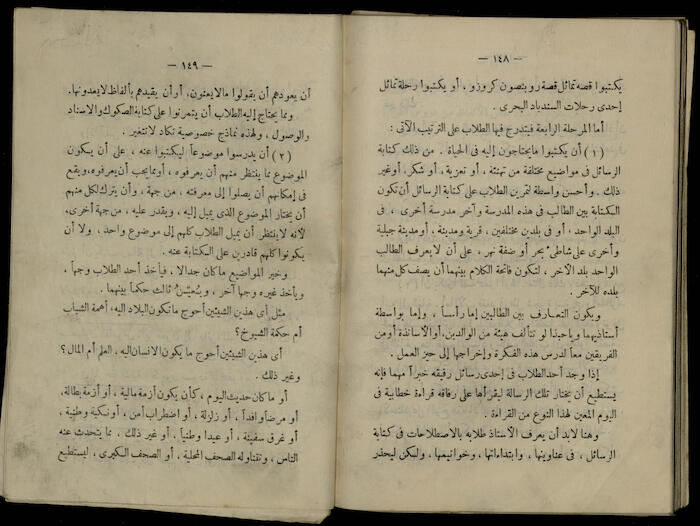 — ١٤٨ —
يكتبوا قصة تماثل قصة روبنصون كروزو ، أو يكتبوا رحلة تماثل
إحدى رحلات السندباد البحرى .
أما المرحلة الرابعة فيتدرج فيها الطلاب على الترتيب الآتى :
( ١ ) أن يكتبوا ما يحتاجون إليه فى الحياة . من ذلك كتابة
الرسائل فى مواضيع مختلفة من تهنئة ، أو تعزية ، أو شكر، أوغير
ذلك . وأحسن واسطة لتمرين الطلاب على كتابة الرسائل أن تكون
الكتابة بين الطالب فى هذه المدرسة وآخر مدرسة أخرى ، فى
البلد الواحد ، أو فى بلدين مختلفين ، قرية ومدينة ، أومدينة جبلية
وأخرى على شاطئ بحر أو ضفة نهر ، على أن لا يعرف الطالب
الواحد بلد الآخر ، لتكون فاتحة الكلام بينهما أن يصف كل منهما
بلده للآخر .
ويكون التعارف بين الطالبين إما رأساً ، وإما بواسطة
أستاذيهما وياحبذا لو تتألف هيئة من الوالدين، أوالأساتذة أومن
الفريقين معاً لدرس هذه الفكرة وإخراجها إلى حيز العمل .
إذا وجد أحد الطلاب فى إحدى رسائل رفيقه خبراً مهما فإنه
يستطيع أن يختار تلك الرسالة ليقرأها على رفاقه قراءة خطابية فى
اليوم المعين لهذا النوع من القراءة .
وهنا لابد أن يعرف الأستاذ طلابه بالاصطلاحات فى كتابة
الرسائل ، فى عناوينها ، وابتداءاتها ، وخواتيمها ، ولكن ليحذر
— ١٤٩ —
أن يعودهم أن يقولوا مالايعنون، أوأن يقيدهم بألفاظ لايعدونها.
ومما يحتاج إليه الطلاب أن يتمرنوا على كتابة الصكوك والاسناد
والوصول ، ولهذه نماذج خصوصية تكاد لاتتغير .
( ٢ ) أن يدرسوا موضوعاً ليكتبوا عنه ، على أن يكون
الموضوع مما ينتظر منهم أن يعرفوه ، أومما يجب أن يعرفوه، ويقع
فى إمكانهم أن يصلوا إلى معرفته ، من جهة ، وأن يترك لكل منهم
أن يختار الموضوع الذى يميل إليه ، ويقدر عليه ، من جهة أخرى،
لأنه لاينتظر أن يميل الطلاب كلهم إلى موضوع واحد ، ولا أن
يكونوا كلهم قادرين على الكتابة عنه .
وخير المواضيع ما كان جدالا . فيأخذ أحد الطلاب وجهاً ،
ويأخذ غيره وجهاً آخر ، ويُعيَّن ثالث حكماً بينهما .
مثل أى هذين الشيئين أحوج ما تكون البلاد اليه، أهمة الشباب
أم حكمة الشيوخ ؟
أى هذين الشيئين أحوج ما يكون الانسان اليه، العلم أم المال ؟
وغير ذلك .
أو ماكان حديث اليوم ، كأن يكون أزمة مالية ، أو أزمة بطالة،
أو مرضاً وافداً ، أو زلزلة ، أو اضطراب أمن ، أو نكبة وطنية ،
أو غرق سفينة ، أو عيدا وطنياً ، أو غير ذلك ، مما يتحدث عنه
الناس ، وتتناوله الصحف المحلية ، أو الصحف الكبرى ، ليستطيع